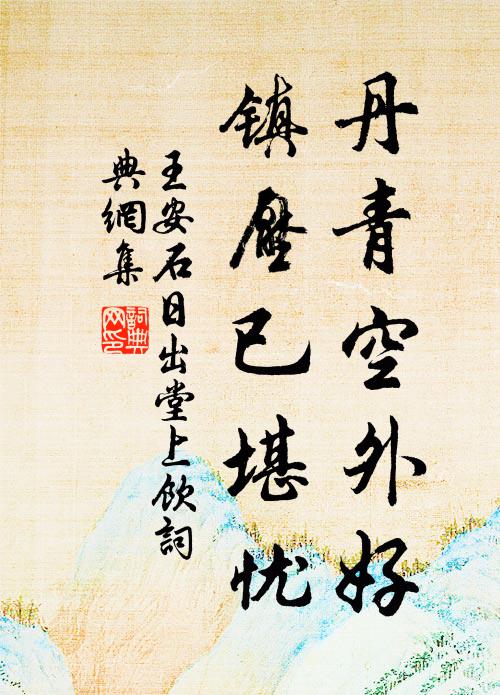 丹青空外好
镇压已堪忧
王安石日出堂上饮词
典網集
詞典
网印